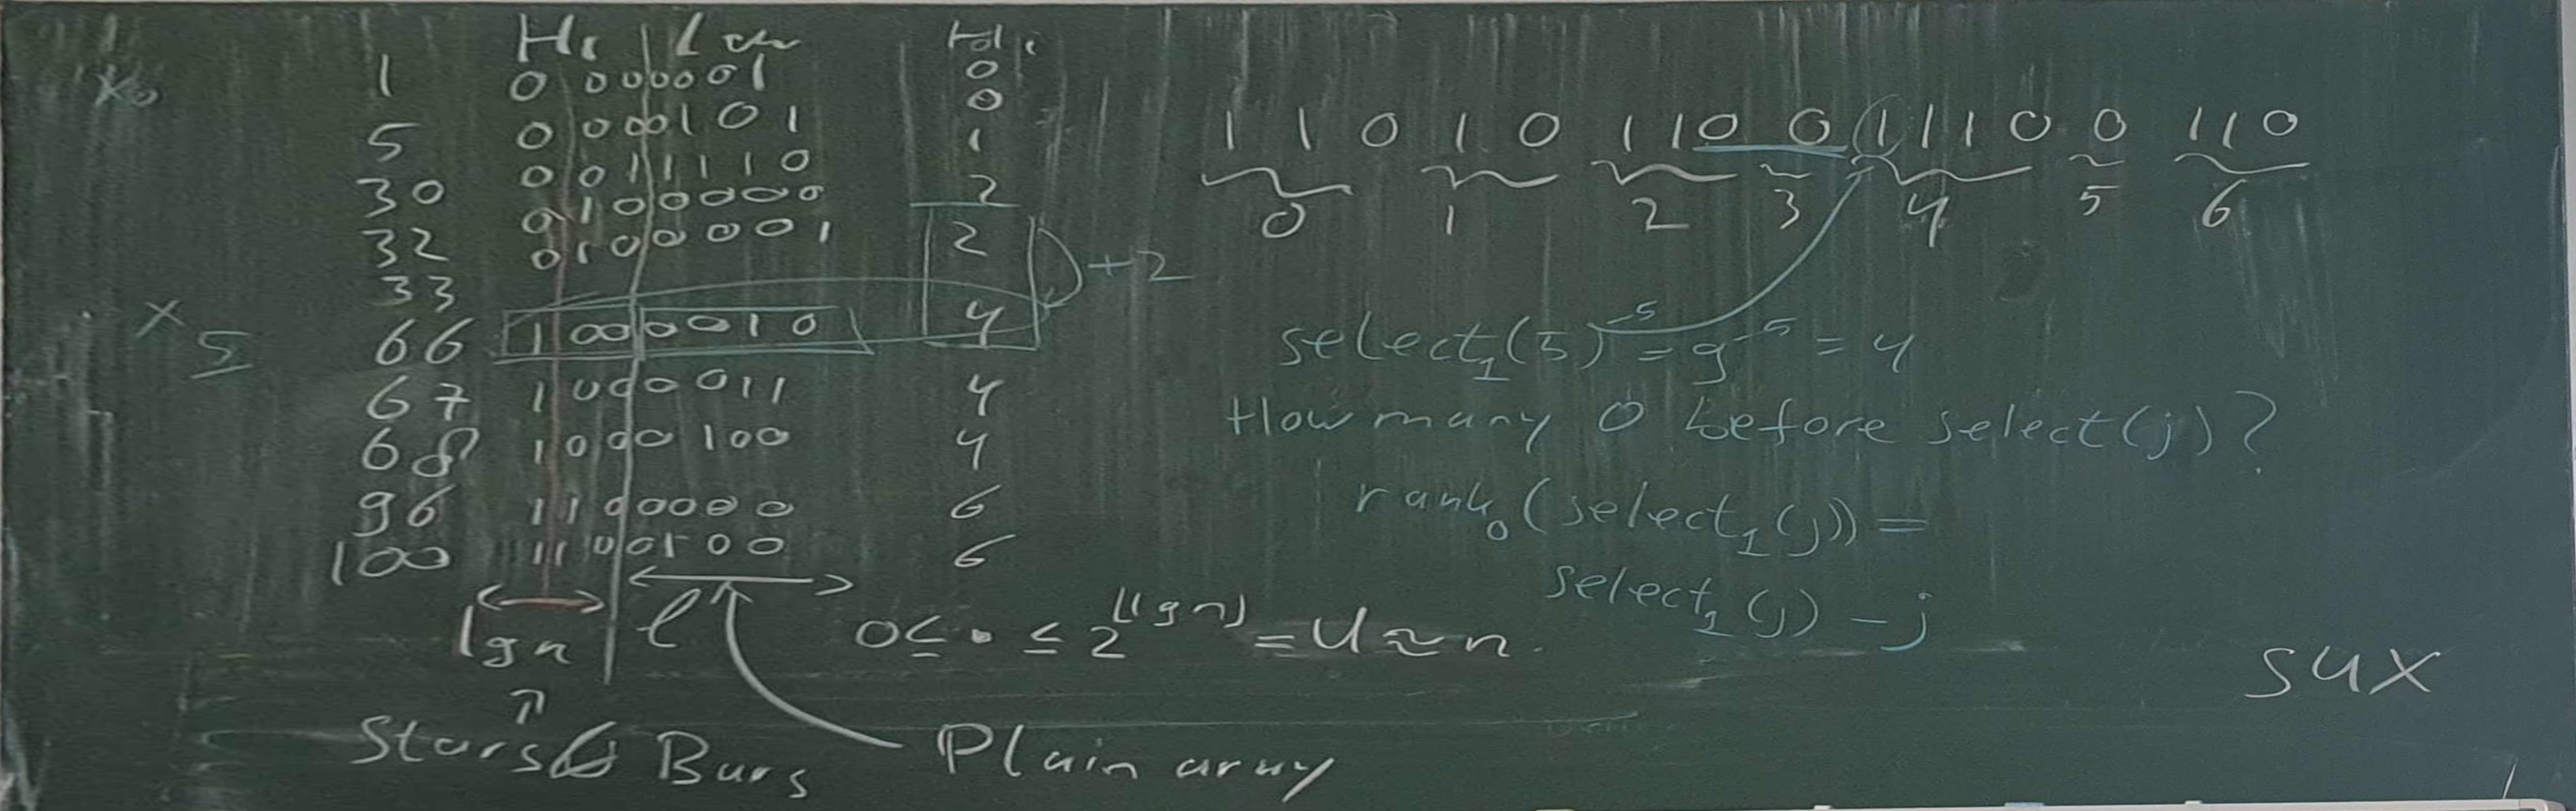 Hi | Low Hi
x₀ 1 0 000001 0
5 0 000101 0
30 0 011110 1
32 0 100000 2
33 0 100001 2
+2
x₅ 66 1 000010 4
67 1 000011 4
68 1 000100 4
96 1 100000 6
100 1 100100 6
lg n ℓ 0 ≤ • ≤ 2^⌊lg n⌋ = U ≈ n.
Stars & Bars
Plain array
1 1 0 1 0 1 1 0 0 1 1 1 0 0 1 1 0
0 1 2 3 4 5 6
select₁(5) -5 = 9 -5 = 4
How many 0 before select(j)?
rank₀(select₁(j)) =
select₁(j) - j
sux